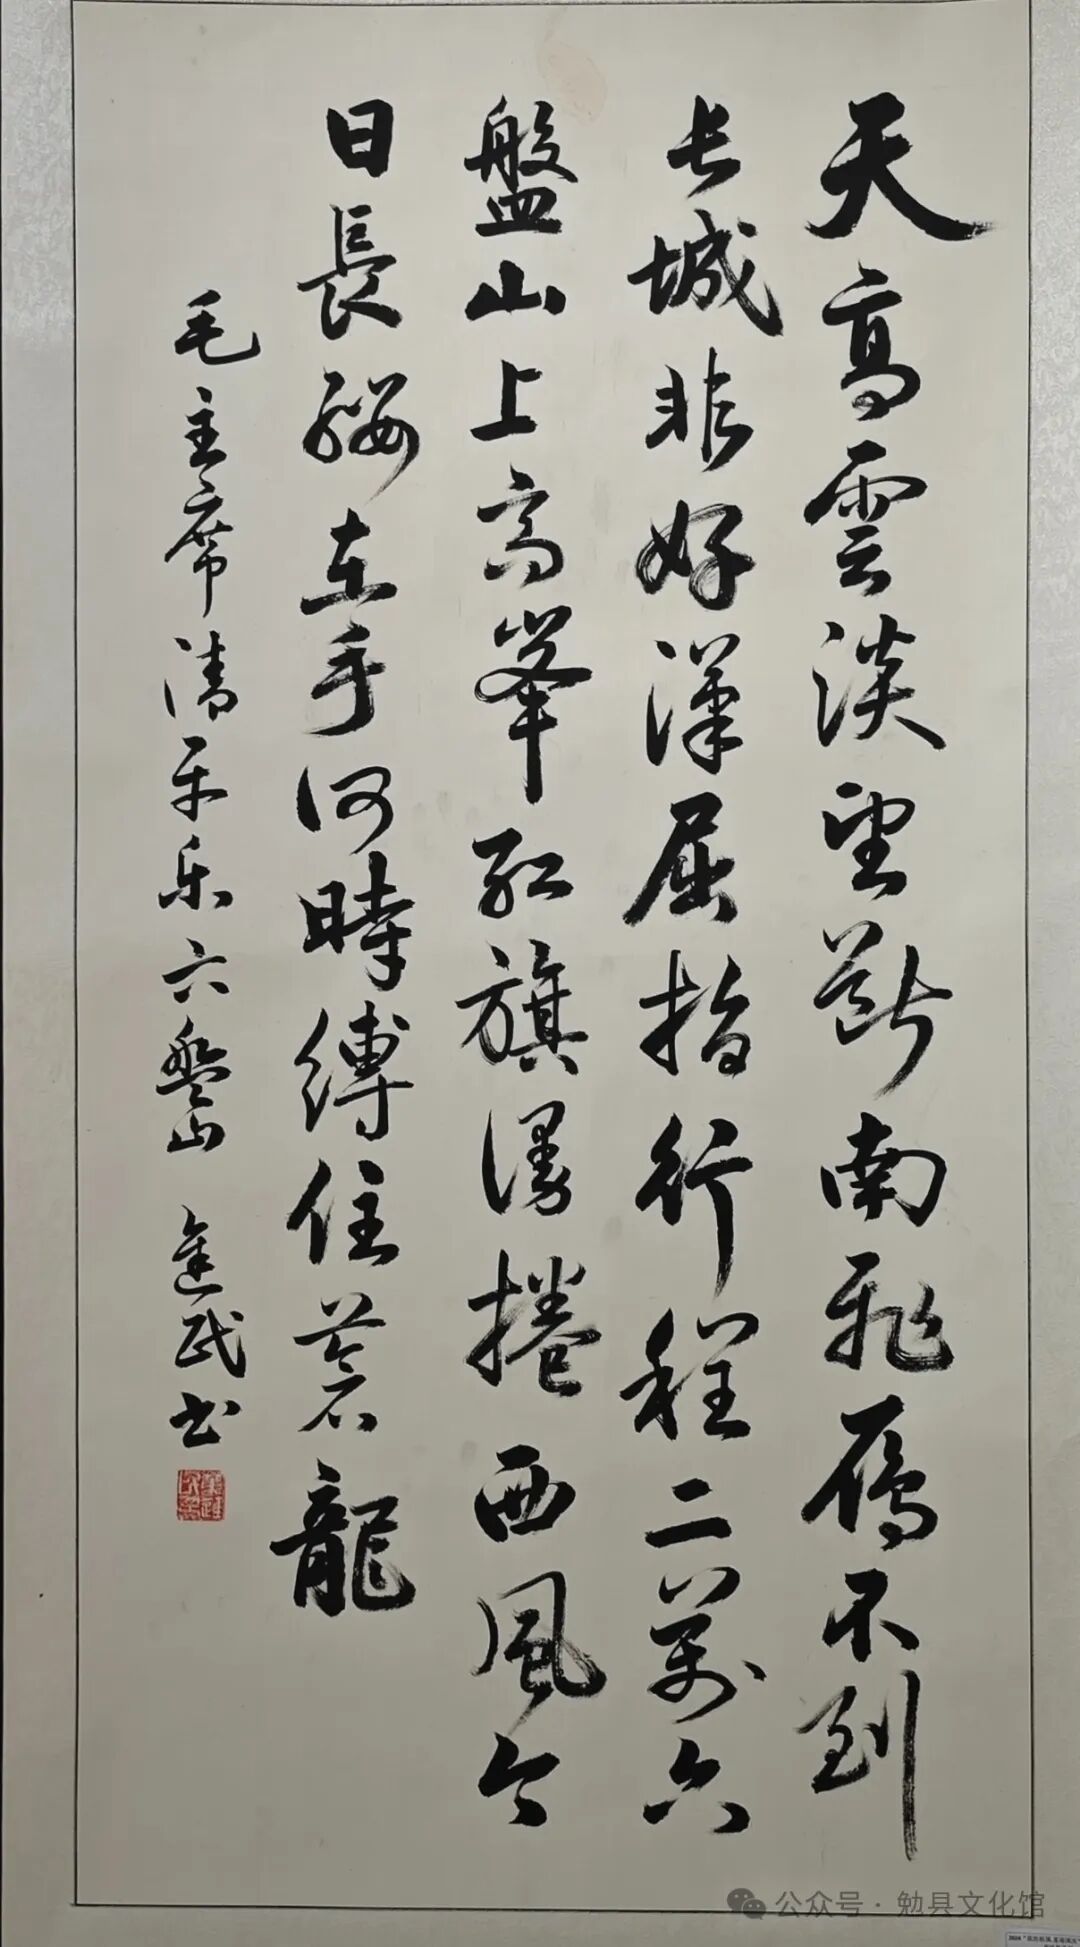 天高雲淡望斷南飛雁不到
长城非好漢屈指行程二萬六
盤山上高峯红旗漫捲西風今
日長缨在手何時缚住苍龍
毛主席清平乐六盘山 建民书
公众号·勉县文化馆